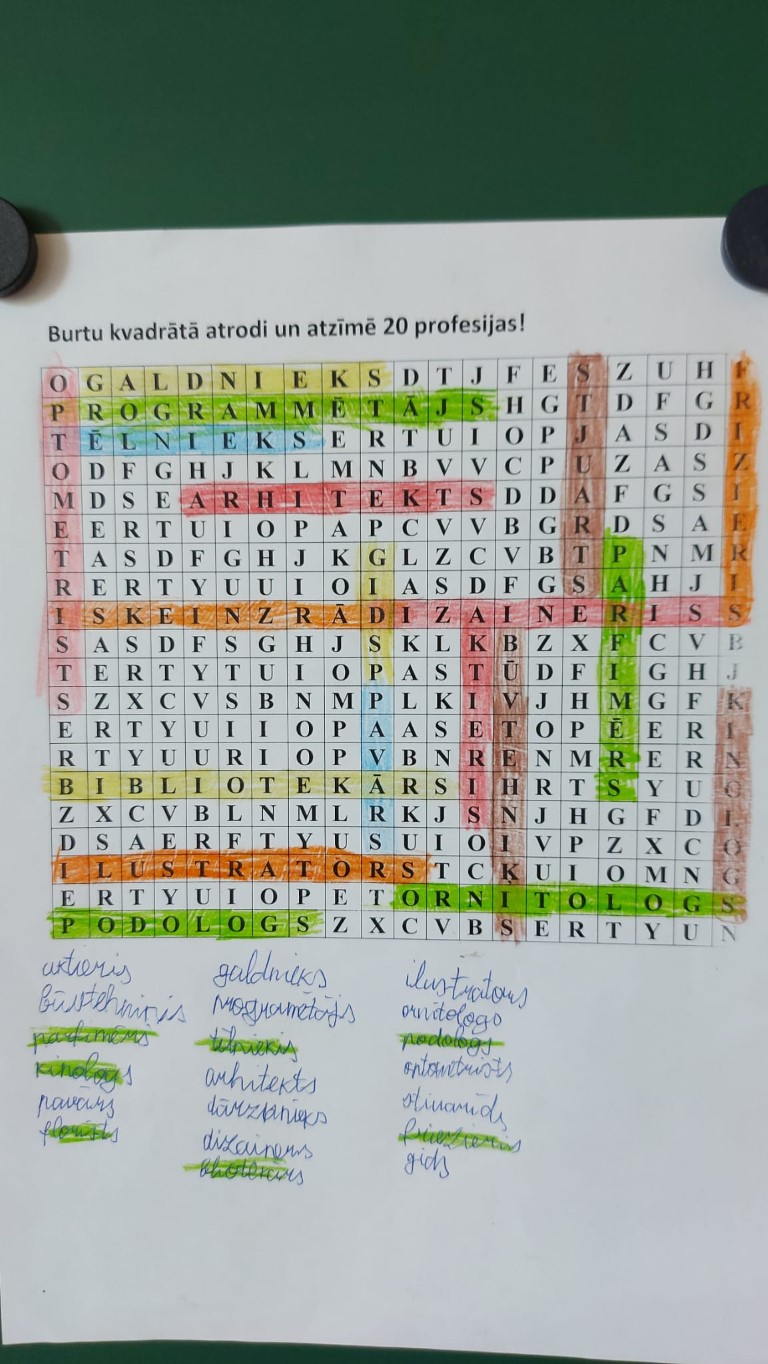 Burtu kvadrātā atrodi un atzīmē 20 profesijas!
O G A L D N I E K S D T J F E S Z U H F
P R O G R A M M Ē T Ā J S H G T D F G R
T Ē L N I E K S E R T U I O P J A S D I
O D F G H J K L M N B V V C P U Z A S Z
M D S E A R H I T E K T S D D A F G S I
E E R T U I O P A P C V V B G R D S A E
T A S D F G H J K G L Z C V B T P N M R
R E R T Y U U I O I A S D F G S A H J I
I S K E I N Z R Ā D I Z A I N E R I S S
S A S D F S G H J S K L K B Z X F C V B
T E R T Y T U I O P A S T Ū D F I G H J
S Z X C V S B N M P L K I V J H M G F K
E R T Y U I I O P A A S E T O P Ē E R I
R T Y U U R I O P V B N R E N M R E R N
B I B L I O T E K Ā R S I H R T S Y U O
Z X C V B L N M L R K J S N J H G F D L
D S A E R F T Y U S U I O I V P Z X C O
I L U S T R A T O R S T C Ķ U I O M N G
E R T Y U I O P E T O R N I T O L O G S
P O D O L O G S Z X C V B S E R T Y U N
aktieris galdnieks ilustrators
būvtehniķis programētājs ornitologo
parfimērs tēlnieks podologs
kinologs arhitekts optometrists
pavārs dārzknieks
florists dizainers frizieris
gids